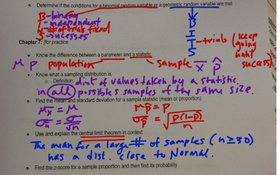 • Determine if the conditions for a binomial random variable or a geometric random variable are met.
B - binary
I - independent
N - # of trials fixed
S - successes
B
I
T - trials (keep going until success)
S
Chapter 7:
• Know the difference between a parameter and a statistic.
μ p population sample x̄ p̂
• Know what a sampling distribution is
○ Definition: dist of values taken by a statistic
in (all) possible samples of the same size.
• Find the mean and standard deviation for a sample statistic (mean or proportion)
μx̄ = μ μp̂ = p
σx̄ = σ/√n σp̂ = √(p(1-p)/n)
• Use and explain the central limit theorem in context
The mean for a large # of samples (n ≥ 30)
has a dist. close to Normal.
• Find the z-score for a sample proportion and then find its probability